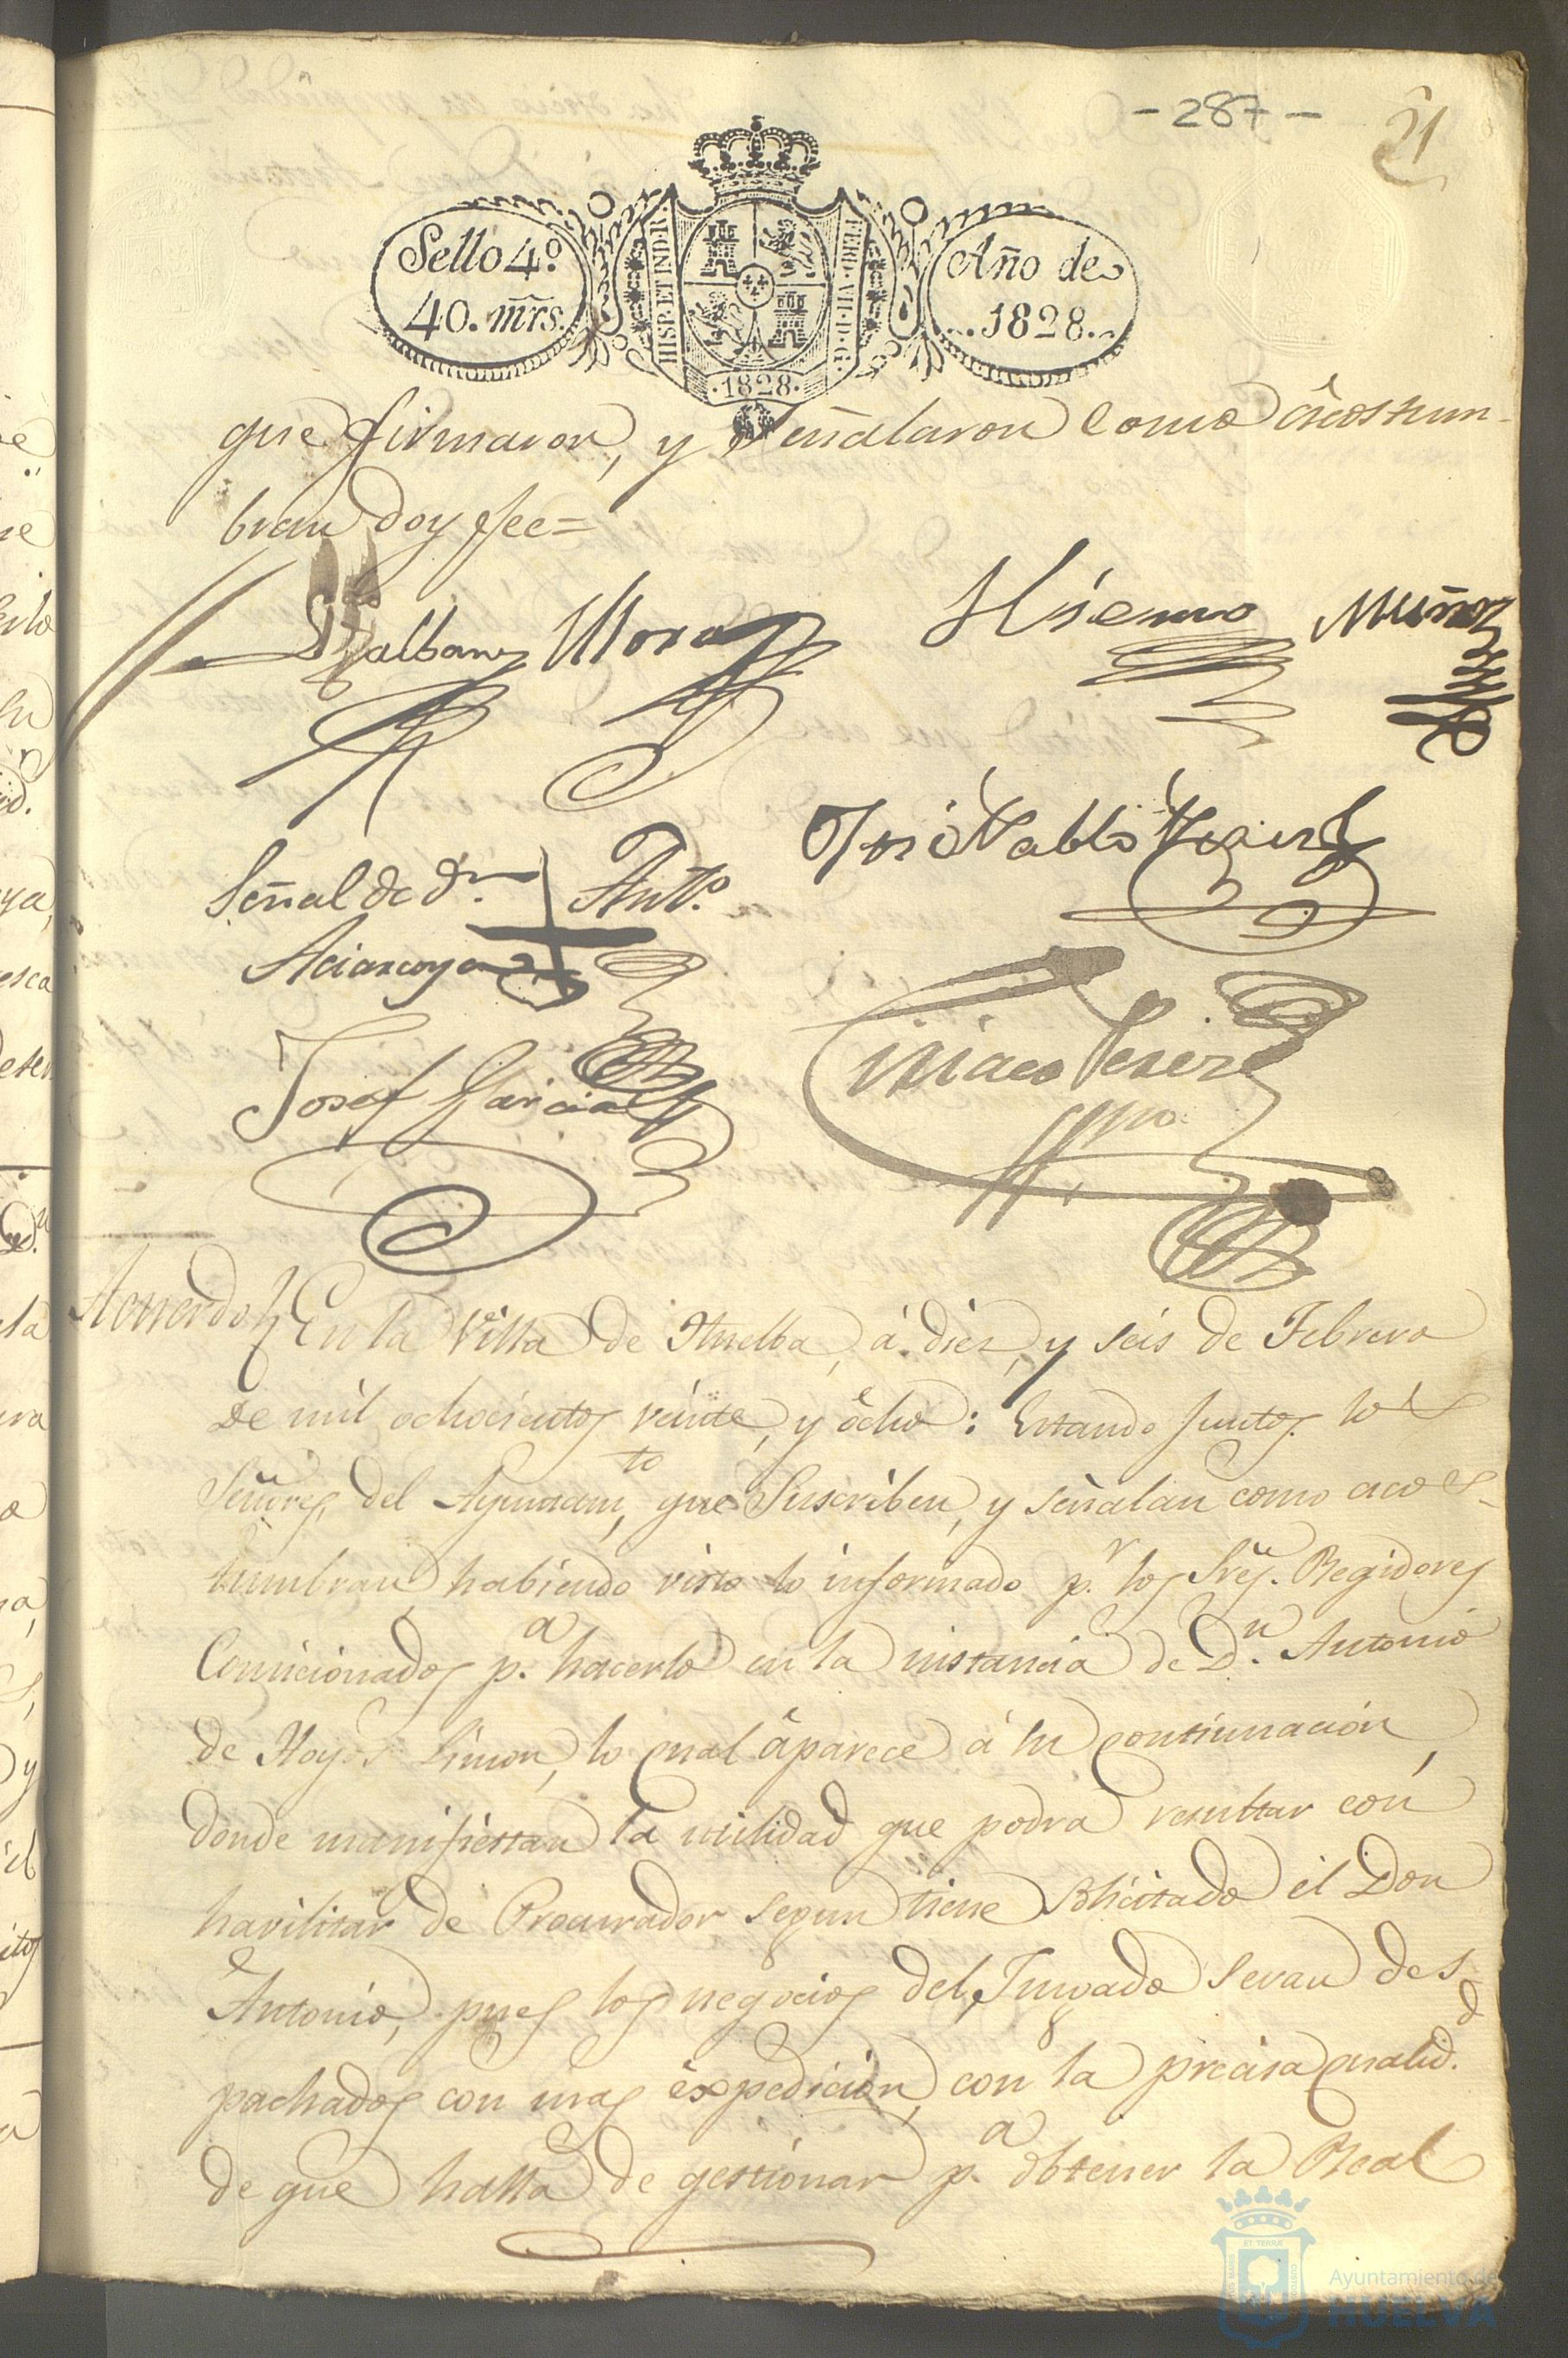 - 287 -
21
Sello 4º
40. mrs.
HISP. ET IND. R.
FERD. VII. D. G.
1828.
Año de
1828.
que firmaron, y señalaron como acostum-
bran doy fee=
Mora
Muñoz
José Pablo Perez
Señal de Dn. Antº.
Josef Garcia
Ciriaco Perez
Acuerdo En la Villa de Huelba, á diez, y seis de Febrero
de mil ochocientos veinte, y ocho: Estando Juntos los
Señores, del Ayuntamto, que Suscriben, y señalan como acos-
tumbran, habiendo visto lo informado pr. los Sres. Regidores
Comicionados pa. hacerlo en la instancia de Dn. Antonio
de Hoyos Limon, lo cual aparece á su continuación,
donde manifiestan la utilidad que podrá resultar con
havilitar de Procurador segun tiene solicitado el Don
Antonio, pues los negocios del Juzgado seran des-
pachados con mas expedición, con la precisa cualidd.
de que halla de gestionar pa. obtener la Real
Ayuntamiento de
HUELVA